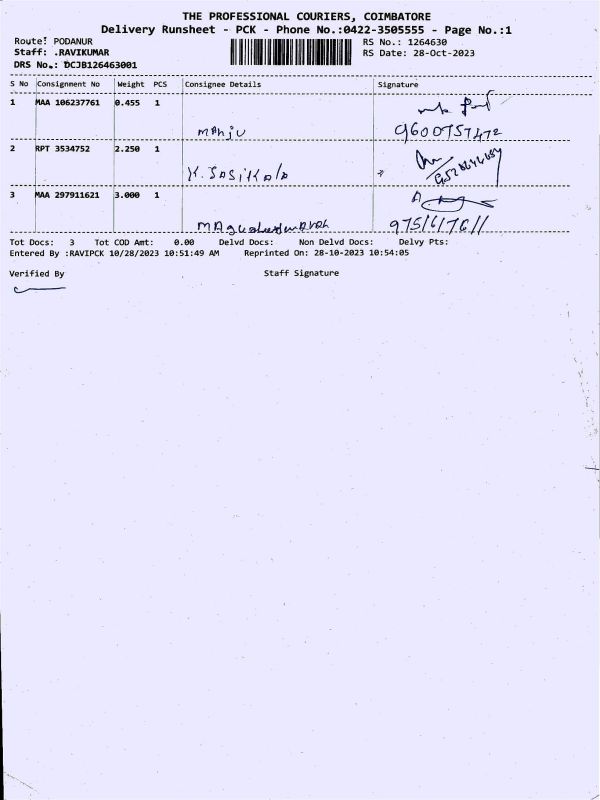 THE PROFESSIONAL COURIERS, COIMBATORE
Delivery Runsheet - PCK - Phone No.:0422-3505555 - Page No.:1
Route: PODANUR RS No.: 1264630
Staff: .RAVIKUMAR RS Date: 28-Oct-2023
DRS No.: DCJB126463001
S No Consignment No Weight PCS Consignee Details Signature
1 MAA 106237761 0.455 1
Manju 9600757472
2 RPT 3534752 2.250 1
K. SASIKALA
3 MAA 297911621 3.000 1
9751617611
Tot Docs: 3 Tot COD Amt: 0.00 Delvd Docs: Non Delvd Docs: Delvy Pts:
Entered By :RAVIPCK 10/28/2023 10:51:49 AM Reprinted On: 28-10-2023 10:54:05
Verified By Staff Signature